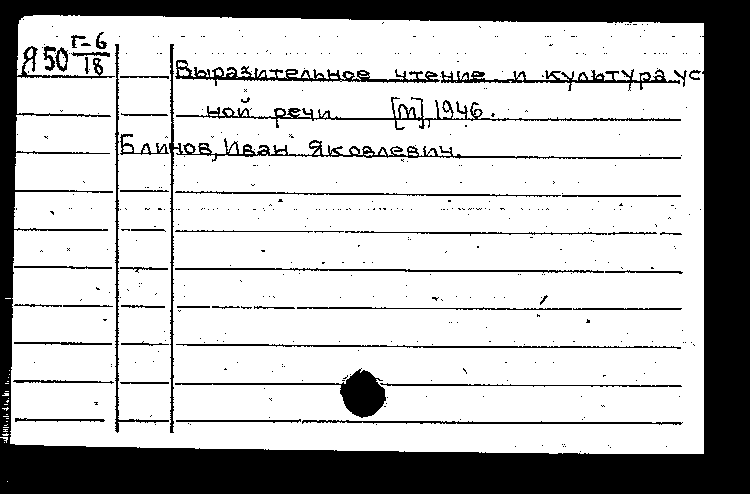 Я 50 Г-6/18 Выразительное чтение и культура уст
ной речи [М], 1946.
Блинов, Иван Яковлевич.